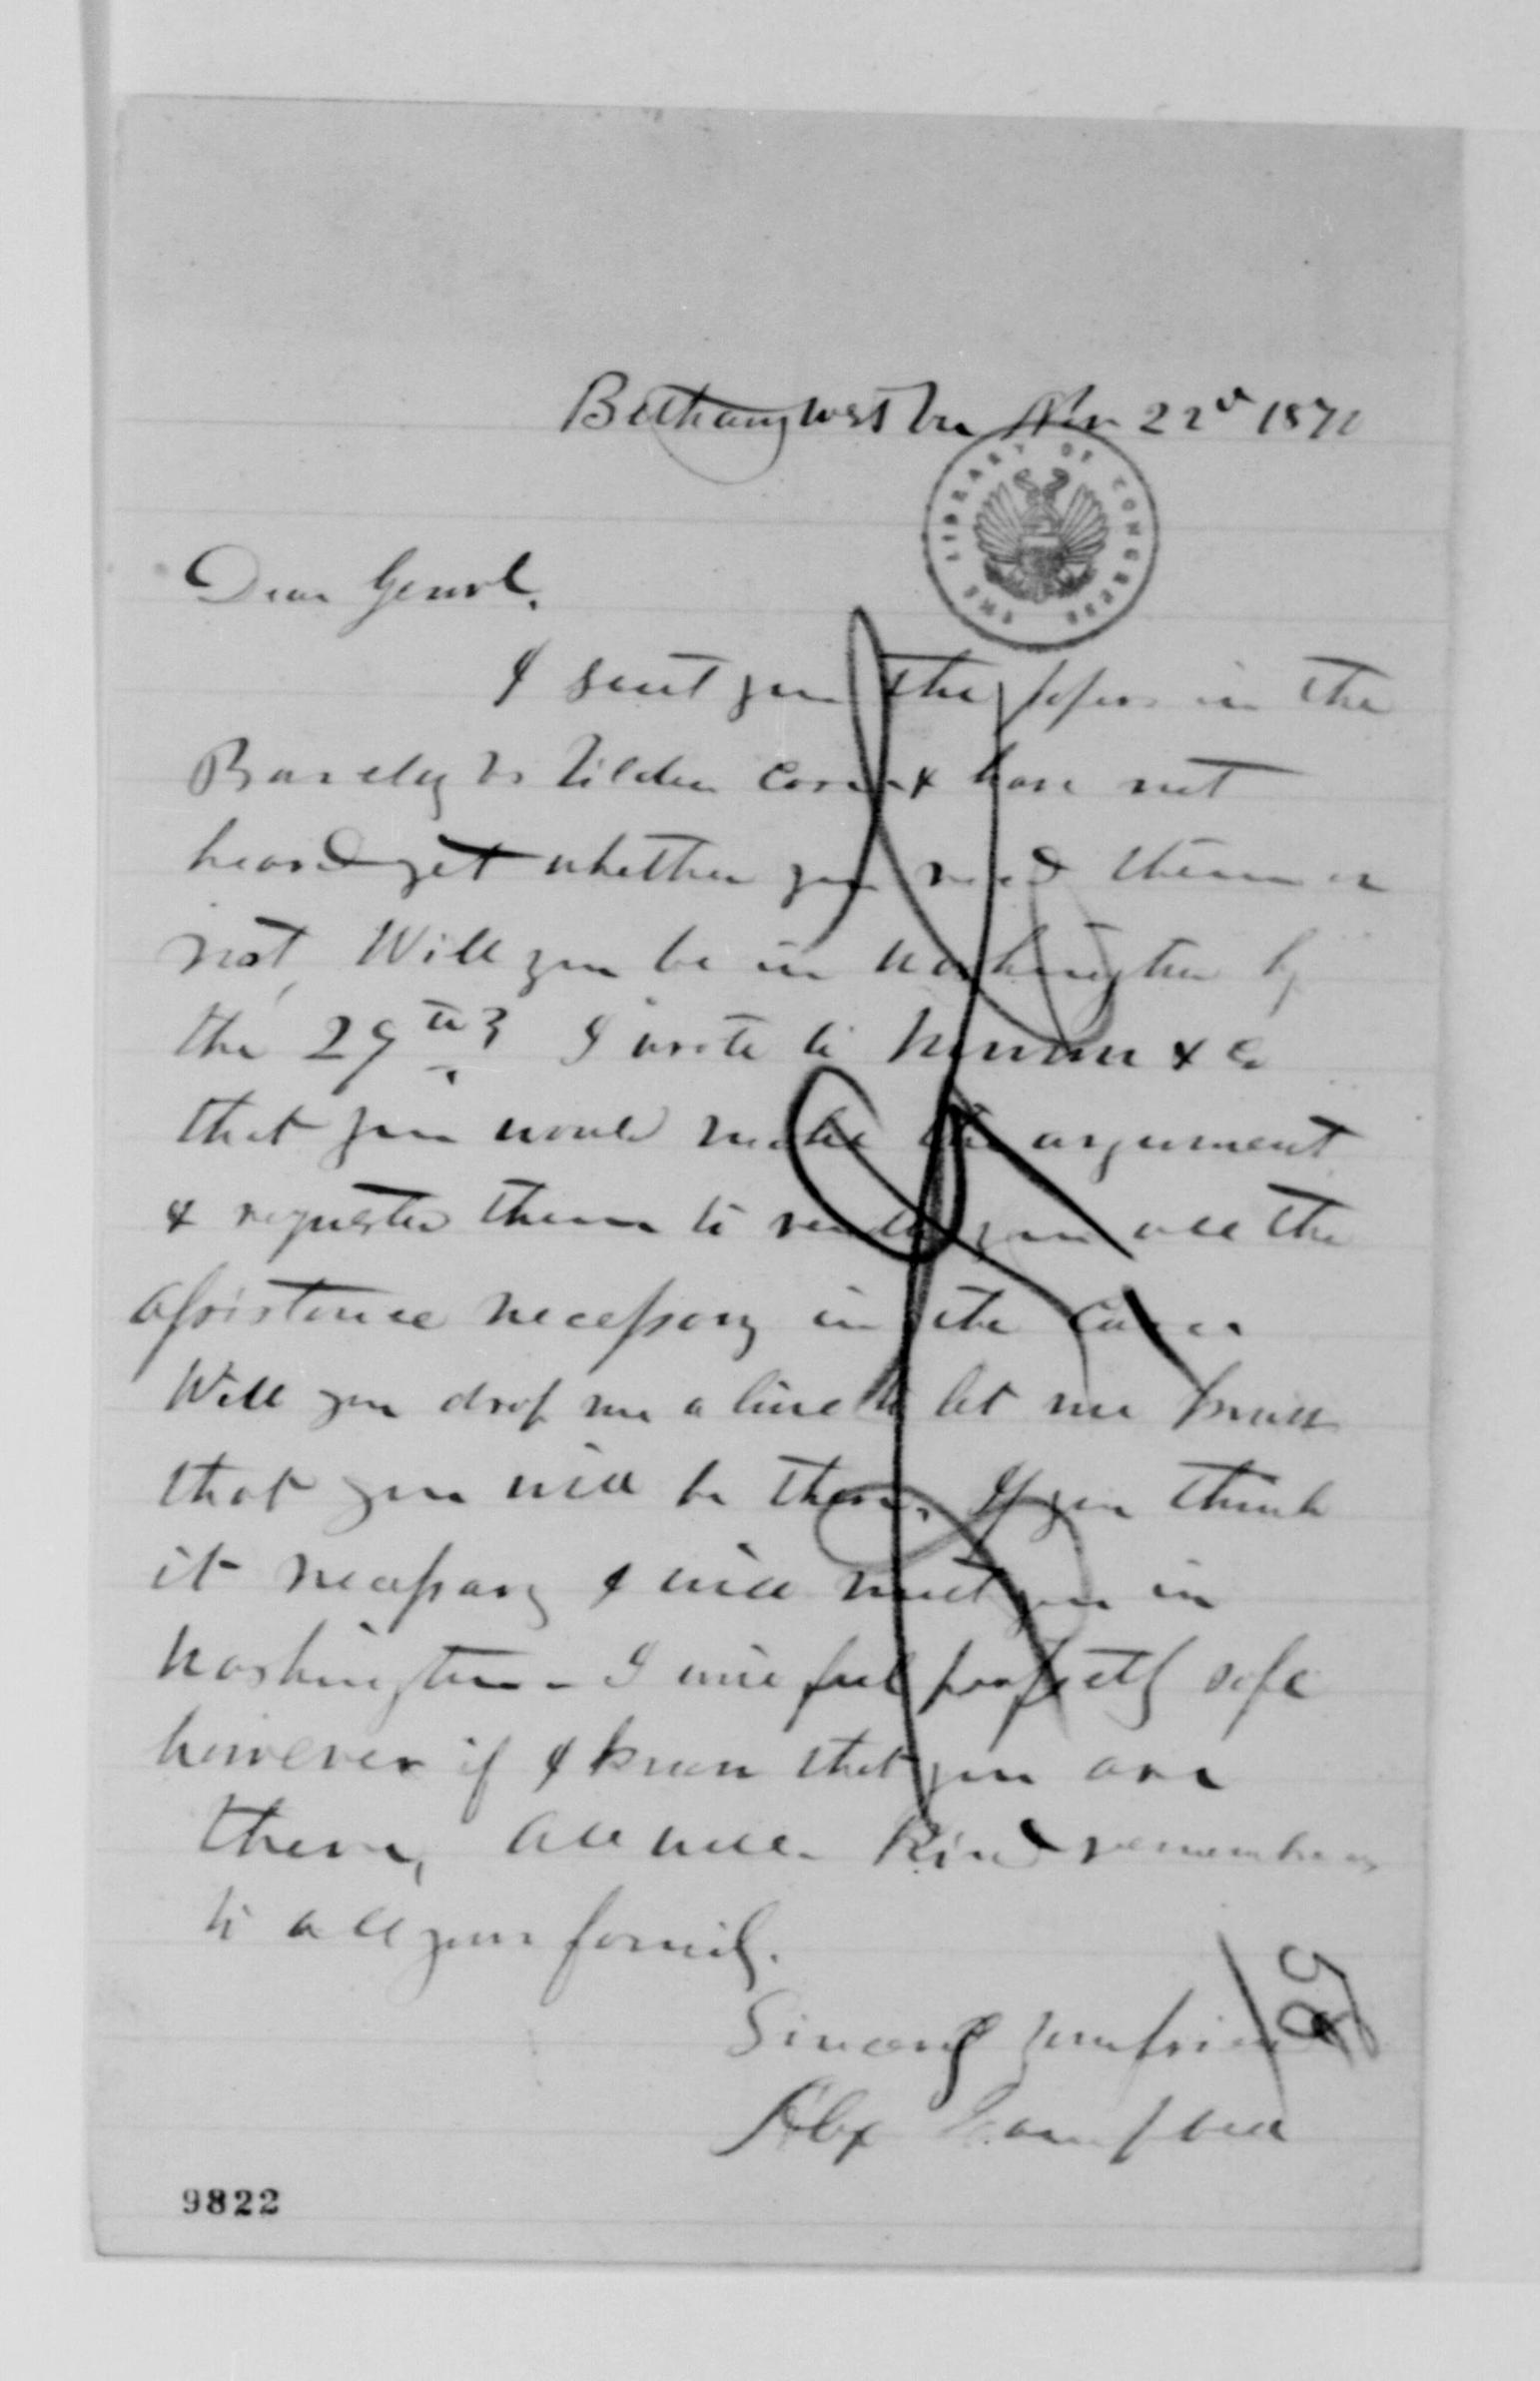 Bethany West Va Nov 22d 1871
THE LIBRARY OF CONGRESS
Dear Genrl.
I sent you the papers in the
Barclay vs Tilden case & have not
heard yet whether you need them or
not, Will you be in Washington by
the 29th? I wrote to & Co
that you would make the argument
& requested them to render you all the
assistance necessary in the case.
Will you drop me a line to let me know
that you will be there. If you think
it necessary I will meet you in
Washington - I will feel perfectly safe
however if I know that you are
there, All well. Kind remembrances
to all your family.
Sincerely your friend
Alex Campbell
58
9822